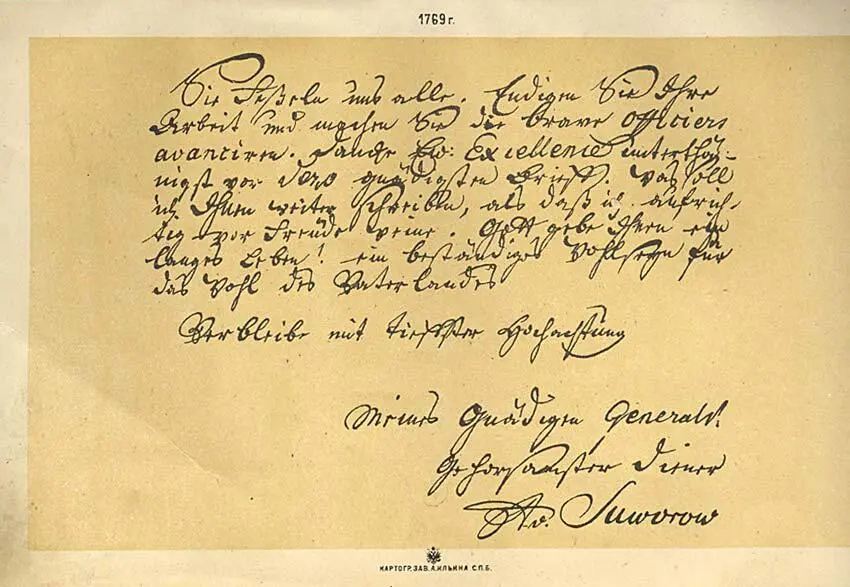 1769 г.
Sie feßeln uns alle. Endigen Sie Ihre
Arbeit und machen Sie die brave Officiers
avanciren. Danke Ew: Excellence unterthä-
nigst vor dero gnädigsten Brieff. Was soll
ich Ihnen weiter schreiben, als daß ich aufrich-
tig vor Freude weine. Gott gebe Ihnen ein
langes Leben! ein beständiges Wohlseyn für
das Wohl des Vaterlandes
Verbleibe mit tieffster Hochachtung
Meines Gnädigen Generals
Gehorsamster Diener
Suworow
КАРТОГР. ЗАВ. А. ИЛЬИНА С.П.Б.